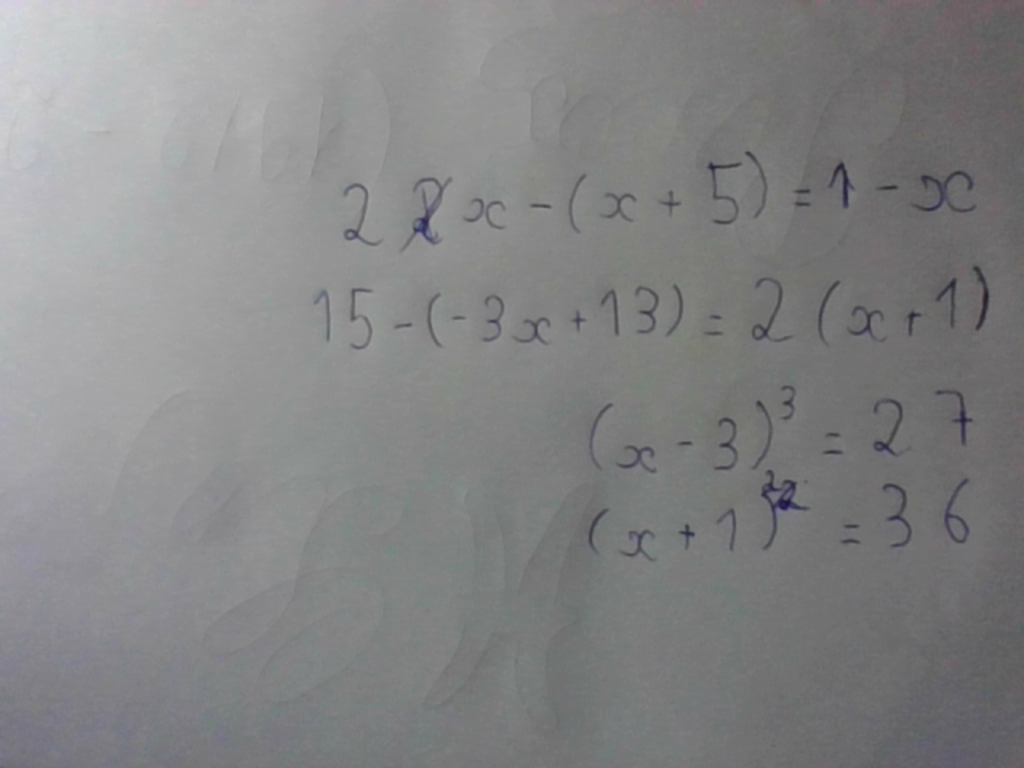 2x - (x + 5) = 1 - x
15 - (-3x + 13) = 2 (x + 1)
(x - 3)³ = 27
(x + 1)² = 36